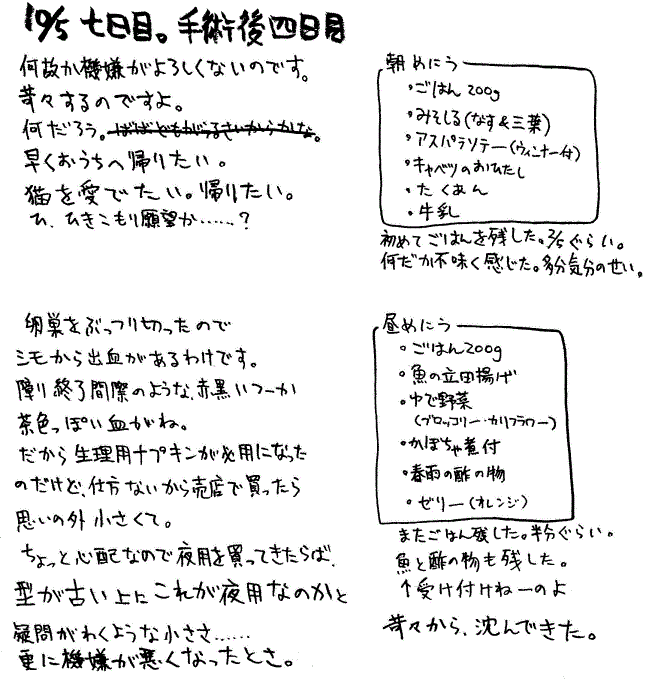 10/5 七日目。手術後四日目
何故か機嫌がよろしくないのです。
苛々するのですよ。
何だろう。ばばどもがうるさいからかな。
早くおうちへ帰りたい。
猫を愛でたい。帰りたい。
ひ、ひきこもり願望か……?
卵巣をぶっつり切ったので
シモから出血があるわけです。
障り終了間際のような、赤黒いつーか
茶色っぽい血がね。
だから生理用ナプキンが必用になった
のだけど、仕方ないから売店で買ったら
思いの外小さくて。
ちょっと心配なので夜用を買ってきたらば、
型が古い上にこれが夜用なのかと
疑問がわくような小ささ……
更に機嫌が悪くなったとさ。
朝めにう
・ごはん200g
・みそしる(なす&三葉)
・アスパラソテー(ウィンナー付)
・キャベツのおひたし
・たくあん
・牛乳
初めてごはんを残した。2/5ぐらい。
何だか不味く感じた。多分気分のせい。
昼めにう
・ごはん200g
・魚の立田揚げ
・ゆで野菜
(ブロッコリー・カリフラワー)
・かぼちゃ煮付
・春雨の酢の物
・ゼリー(オレンジ)
またごはん残した。半分ぐらい。
魚と酢の物も残した。
↑受け付けねーのよ
苛々から、沈んできた。